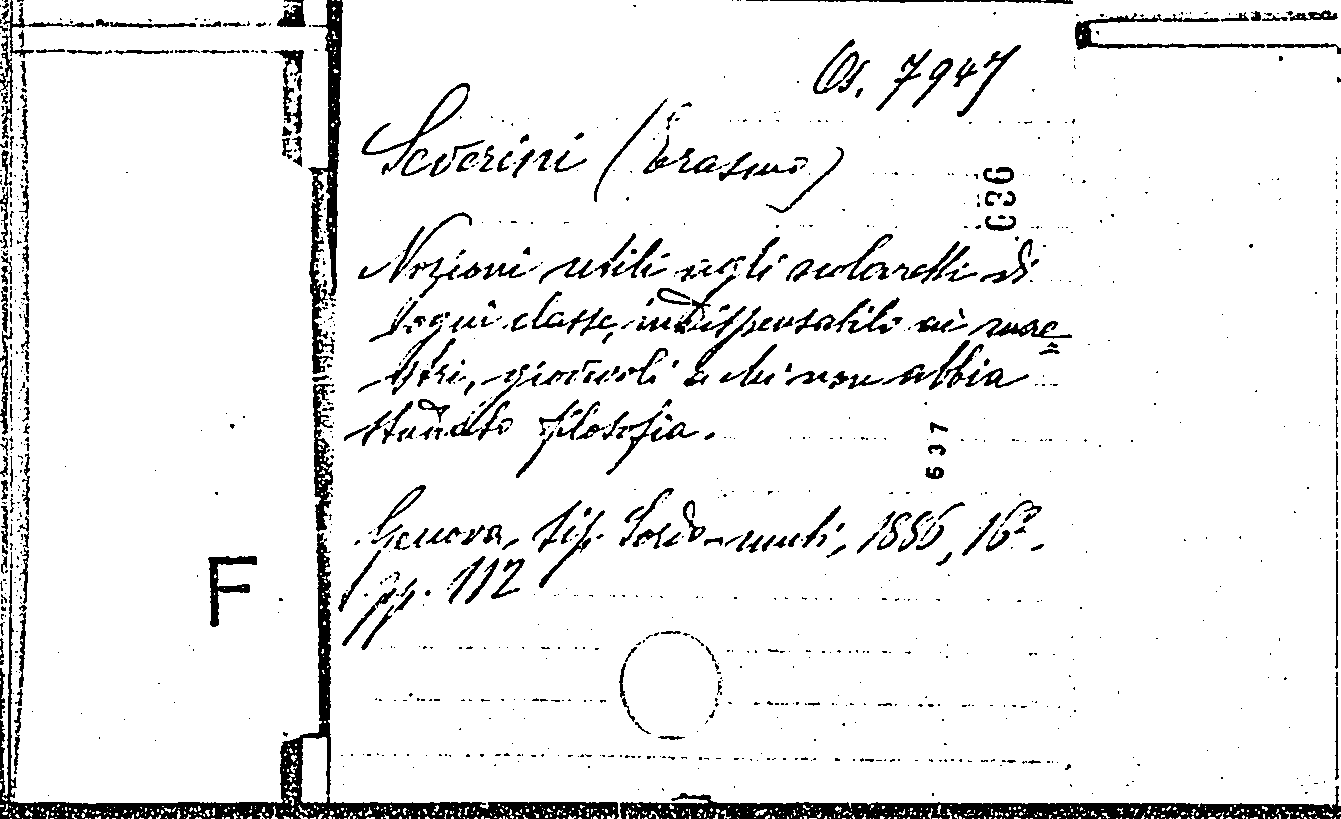 Os. 7947
Severini (Erasmo)
036
Nozioni utili agli scolaretti di
ogni classe, indispensabili ai mae=
stri, giovevoli a chi non abbia
studiato filosofia.
637
Genova, tip. Sordo-muti, 1886, 16º.
pp. 112
F